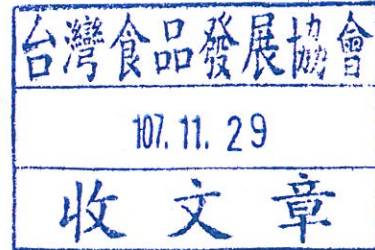 台灣食品發展協會
107. 11. 29
收文章